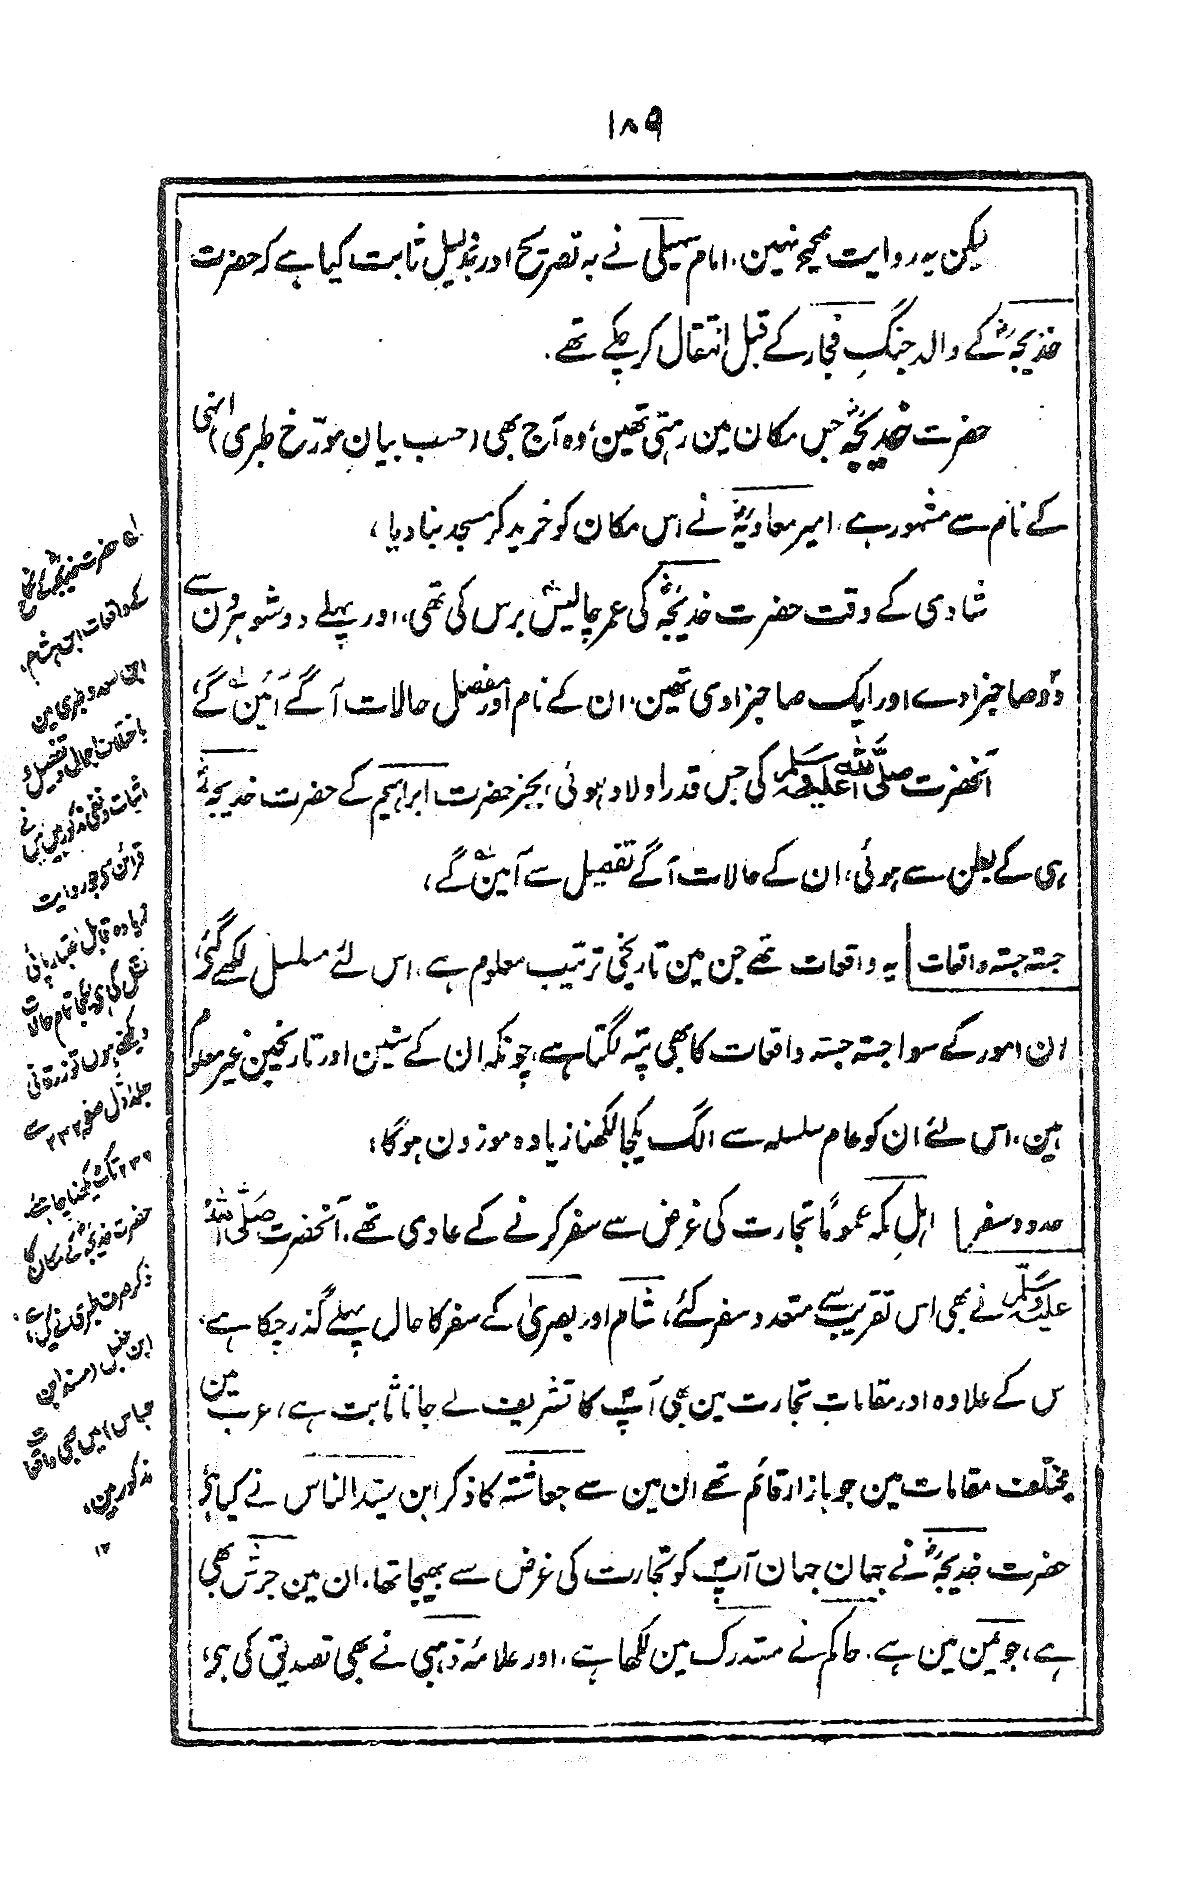 ۱۸۹
لیکن یہ روایت صحیح نہین، امام سہیلی نے بہ تصریح اور بدلیل ثابت کیا ہے کہ حضرت
خدیجہؓ کے والد جنگِ فجار کے قبل انتقال کر چکے تھے۔
حضرت خدیجہؓ جس مکان مین رہتی تھین، وہ آج بھی (حسب بیان مورّخ طبری) انہی
کے نام سے مشہور ہے، امیر معاویہؓ نے اس مکان کو خرید کر مسجد بنا دیا،
شادی کے وقت حضرت خدیجہؓ کی عمر چالیس برس کی تھی، اور پہلے دو شوہرون سے
دو صاحبزادے اور ایک صاحبزادی تھین، ان کے نام اور مفصل حالات آگے آئین گے
آنحضرت صلی اللہ علیہ وسلم کی جس قدر اولاد ہوئی، بجز حضرت ابراہیم کے حضرت خدیجہؓ
ہی کے بطن سے ہوئی، ان کے حالات آگے تفصیل سے آئین گے،
جستہ جستہ واقعات یہ واقعات تھے جن مین تاریخی ترتیب معلوم ہے، اس لئے مسلسل لکھے گئے،
ان امور کے سوا جستہ جستہ واقعات کا بھی پتہ لگتا ہے، چونکہ ان کے سنین اور تاریخین غیر معلوم
ہین، اس لئے ان کو عام سلسلہ سے الگ یکجا لکھنا زیادہ موزون ہوگا،
حدود سفر اہلِ مکہ عموماً تجارت کی غرض سے سفر کرنے کے عادی تھے، آنحضرت صلی اللہ
علیہ وسلم نے بھی اس تقریب سے متعدد سفر کئے، شام اور بصریٰ کے سفر کا حال پہلے گذر چکا ہے،
س کے علاوہ اور مقاماتِ تجارت مین بھی آپؐ کا تشریف لے جانا ثابت ہے، عرب مین
مختلف مقامات مین جو بازار قائم تھے ان مین سے جعاشتہ کا ذکر ابن سید الناس نے کیا ہے،
حضرت خدیجہؓ نے جہان جہان آپؐ کو تجارت کی غرض سے بھیجا تھا، ان مین جرش بھی
ہے، جو یمن مین ہے۔ حاکم نے مستدرک مین لکھا ہے، اور علامۂ ذہبی نے بھی تصدیق کی ہے،
لے حضرت خدیجہؓ کے نکاح
کے واقعات ابن ہشام،
ابن سعد و طبری مین
باختلاف اجمال و تفصیل و
اثبات و نفی مذکور ہین مین نے
قرائن سے جو روایت
زیادہ قابل اعتبار پائی
نقل کی ہے، یکجا تمام حالات
دیکھنے ہون تو زرقانی
جلد اول صفحہ ۲۳۲ سے
۲۳۶ تک دیکھنا چاہئے،
حضرت خدیجہؓ کے مکان کا
ذکر صرف طبری نے کیا ہے،
ابن حنبل (مسند ابن
عباس) مین بھی واقعات
مذکور ہین،
۱۲